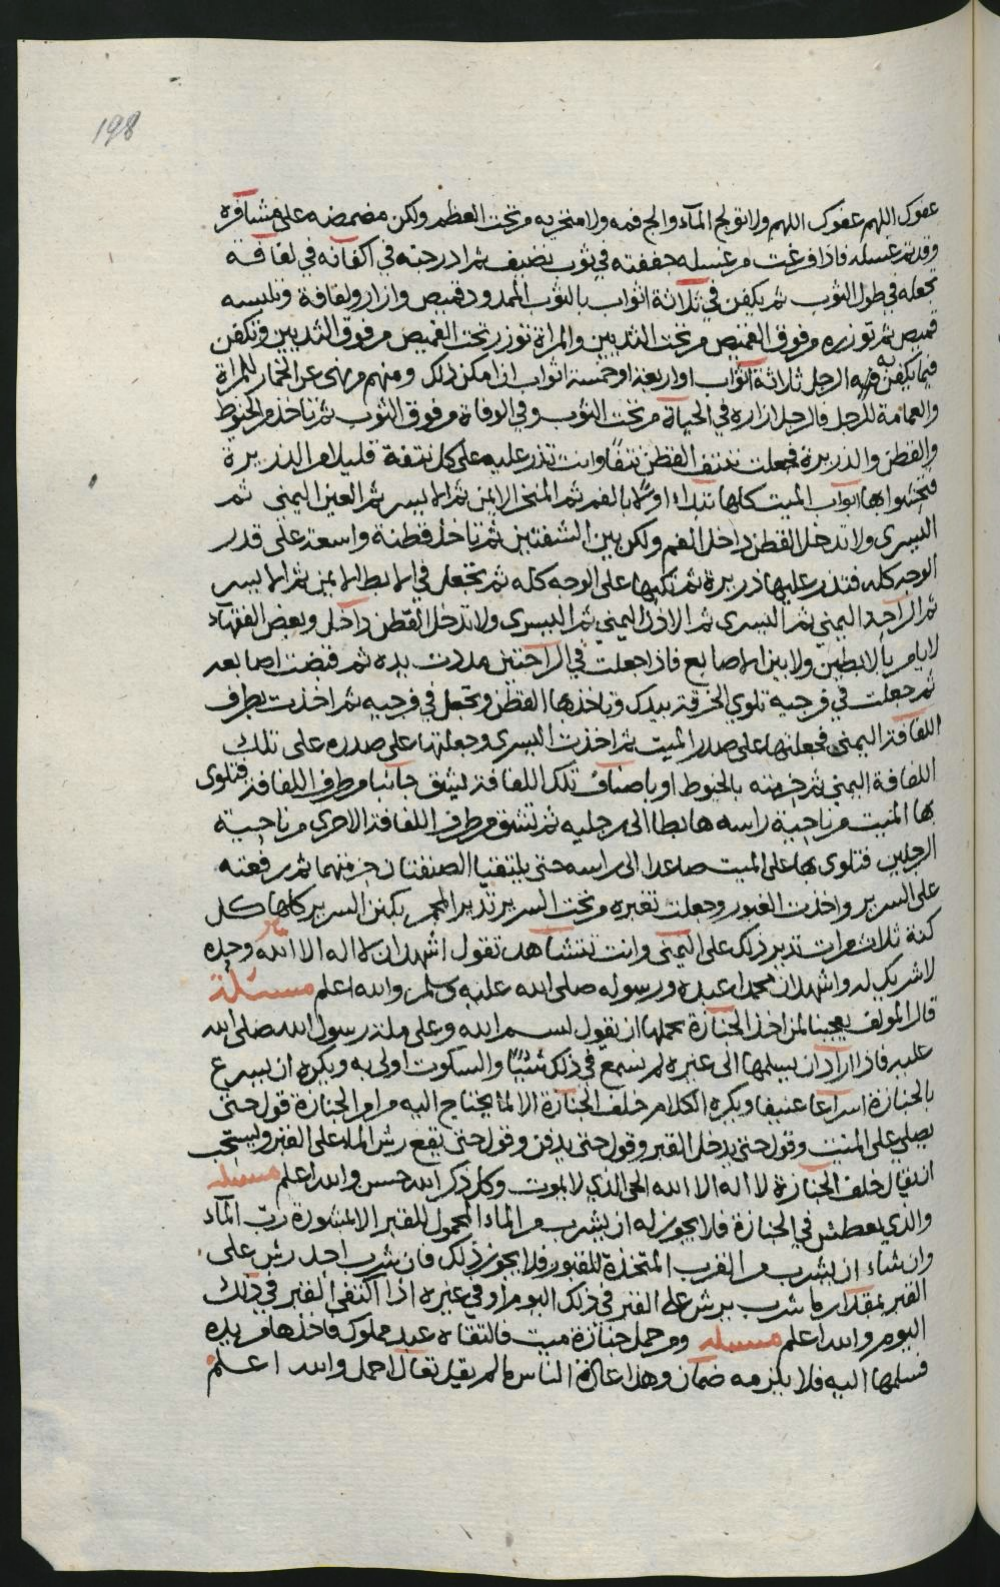 198
عفوك اللهم عفوك اللهم ولا تولج الماء والج فمه ولا منخريه من تحت العظم ولكن مضمضه على مشافره
وقد تم غسله فاذا فرغت من غسله جففته في ثوب نضيف ثم ادرجته في اكفانه في لفافة
تجعله في طول الثوب ثم يكفن في ثلاثة اثواب بالثوب الممدود قميص وازار ولفافة وتلبسه
قميص ثم توزره من فوق القميص من تحت الثديين والمراة توزر تحت القميص من فوق الثديين وتكفن
فيما يكفن به فيه الرجل ثلاثة اثواب او اربعة او خمسة اثواب ان امكن ذلك ومنهم من نهى عن الخمار للمراة
والعمامة للرجل فالرجل ازاره في الحياة من تحت الثوب وفي الوفاة من فوق الثوب ثم تاخذ من الحنوط
والقطن والذريرة فجعلت تنتف القطن نتفا وانت تذر عليه على كل نتفة قليلا من الذريرة
فتحشوا بها ابواب الميت كلها تبدا اولا بالفم ثم المنخر الايمن ثم الايسر ثم العين اليمنى ثم
اليسرى ولا تدخل القطن داخل الفم ولكن بين الشفتين ثم تاخذ قطنة واسعة على قدر
الوجه كله فتذر عليها ذريرة ثم تكبها على الوجه كله ثم تجعل في الابط الايمن ثم الايسر
ثم الراحة اليمنى ثم اليسرى ثم الاذن اليمنى ثم اليسرى ولا تدخل القطن داخل وبعض الفقهاء
لا يامر بالابطين ولا بين الاصابع فاذا جعلت في الراحتين مددت يده ثم قبضت اصابعه
ثم جعلت في فرجيه تلوي الخرقة بيدك وتاخذها القطن وتجعل في فرجيه ثم اخذت بطرف
اللفافة اليمنى فجعلتها على صدر الميت ثم اخذت اليسرى وجعلتها على صدره على تلك
اللفافة اليمنى ثم حزمته بالخيوط او باصناف تلك اللفافة ليشق جانبا من طرف اللفافة فتلوى
بها الميت من ناحية راسه هابطا الى رجليه ثم تشق من طرف اللفافة الاخرى من ناحية
الرجلين فتلوى بها على الميت صاعدا الى راسه حتى يلتقيا الصنفتان حزمتهما ثم رفعته
على السرير واخذت الغبور وجعلت تغبره من تحت السرير تدير المجمر بكنن السرير كلها كل
كنة ثلاث مرات تدير ذلك على اليمنى وانت تتشاهد تقول اشهد ان لا اله الا الله وحده
لا شريك له واشهد ان محمدا عبده ورسوله صلى الله عليه وسلم والله اعلم مسئلة
قال المولف يعجبنا لمن اخذ الجنازة يحملها ان يقول بسم الله وعلى ملة رسول الله صلى الله
عليه فاذا اراد ان يسلمها الى غيره لم نسمع في ذلك شيئا والسكوت اولى به ويكره ان يسرع
بالجنازة اسراعا عنيفا ويكره الكلام خلف الجنازة الا لما يحتاج اليه من امر الجنازة قول حتى
يصلي على الميت وقول حتى يدخل القبر وقول حتى يدفن وقول حتى يقع رش الماء على القبر ويستحب
ان يقال خلف الجنازة لا اله الا الله الحي الذي لا يموت وكل ذكر الله حسن والله اعلم مسئلة
والذي يعطش في الجنازة فلا يجوز له ان يشرب من الماء المحمول للقبر الا بمشورة رب الماء
وان شاء ان يشرب من القرب المتخذة للقبور فلا يجوز ذلك فان شرب احد رش على
القبر بمقدار ما شرب يرش على القبر في ذلك اليوم او في غيره اذا اكتفى القبر في ذلك
اليوم والله اعلم مسئلة ومن حمل جنازة ميت فالتقاه عبد مملوك فاخذها من يده
فسلمها اليه فلا يلزمه ضمان وهذا عادة الناس ما لم يقل تعال احمل والله اعلم